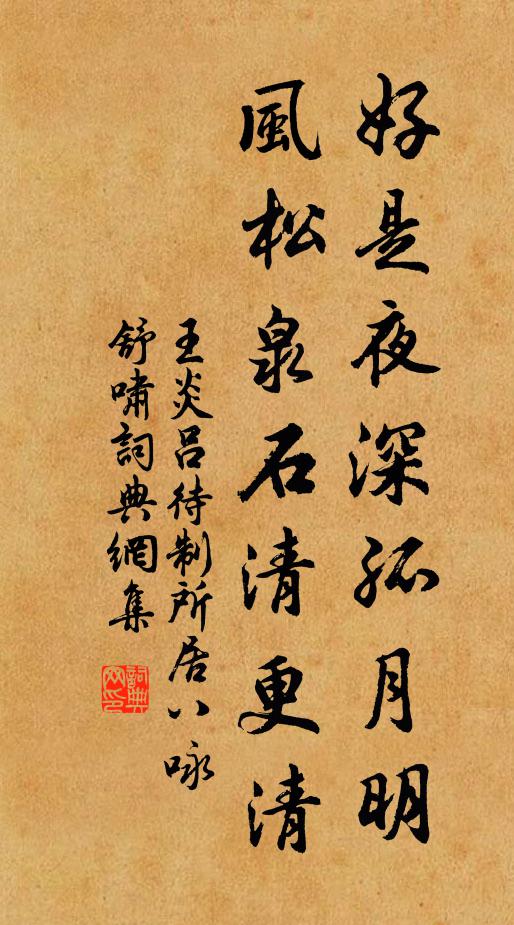 好是夜深孤月明
風松泉石清更清
王炎呂待制所居八咏
舒嘯詞典網集
詞典
网印